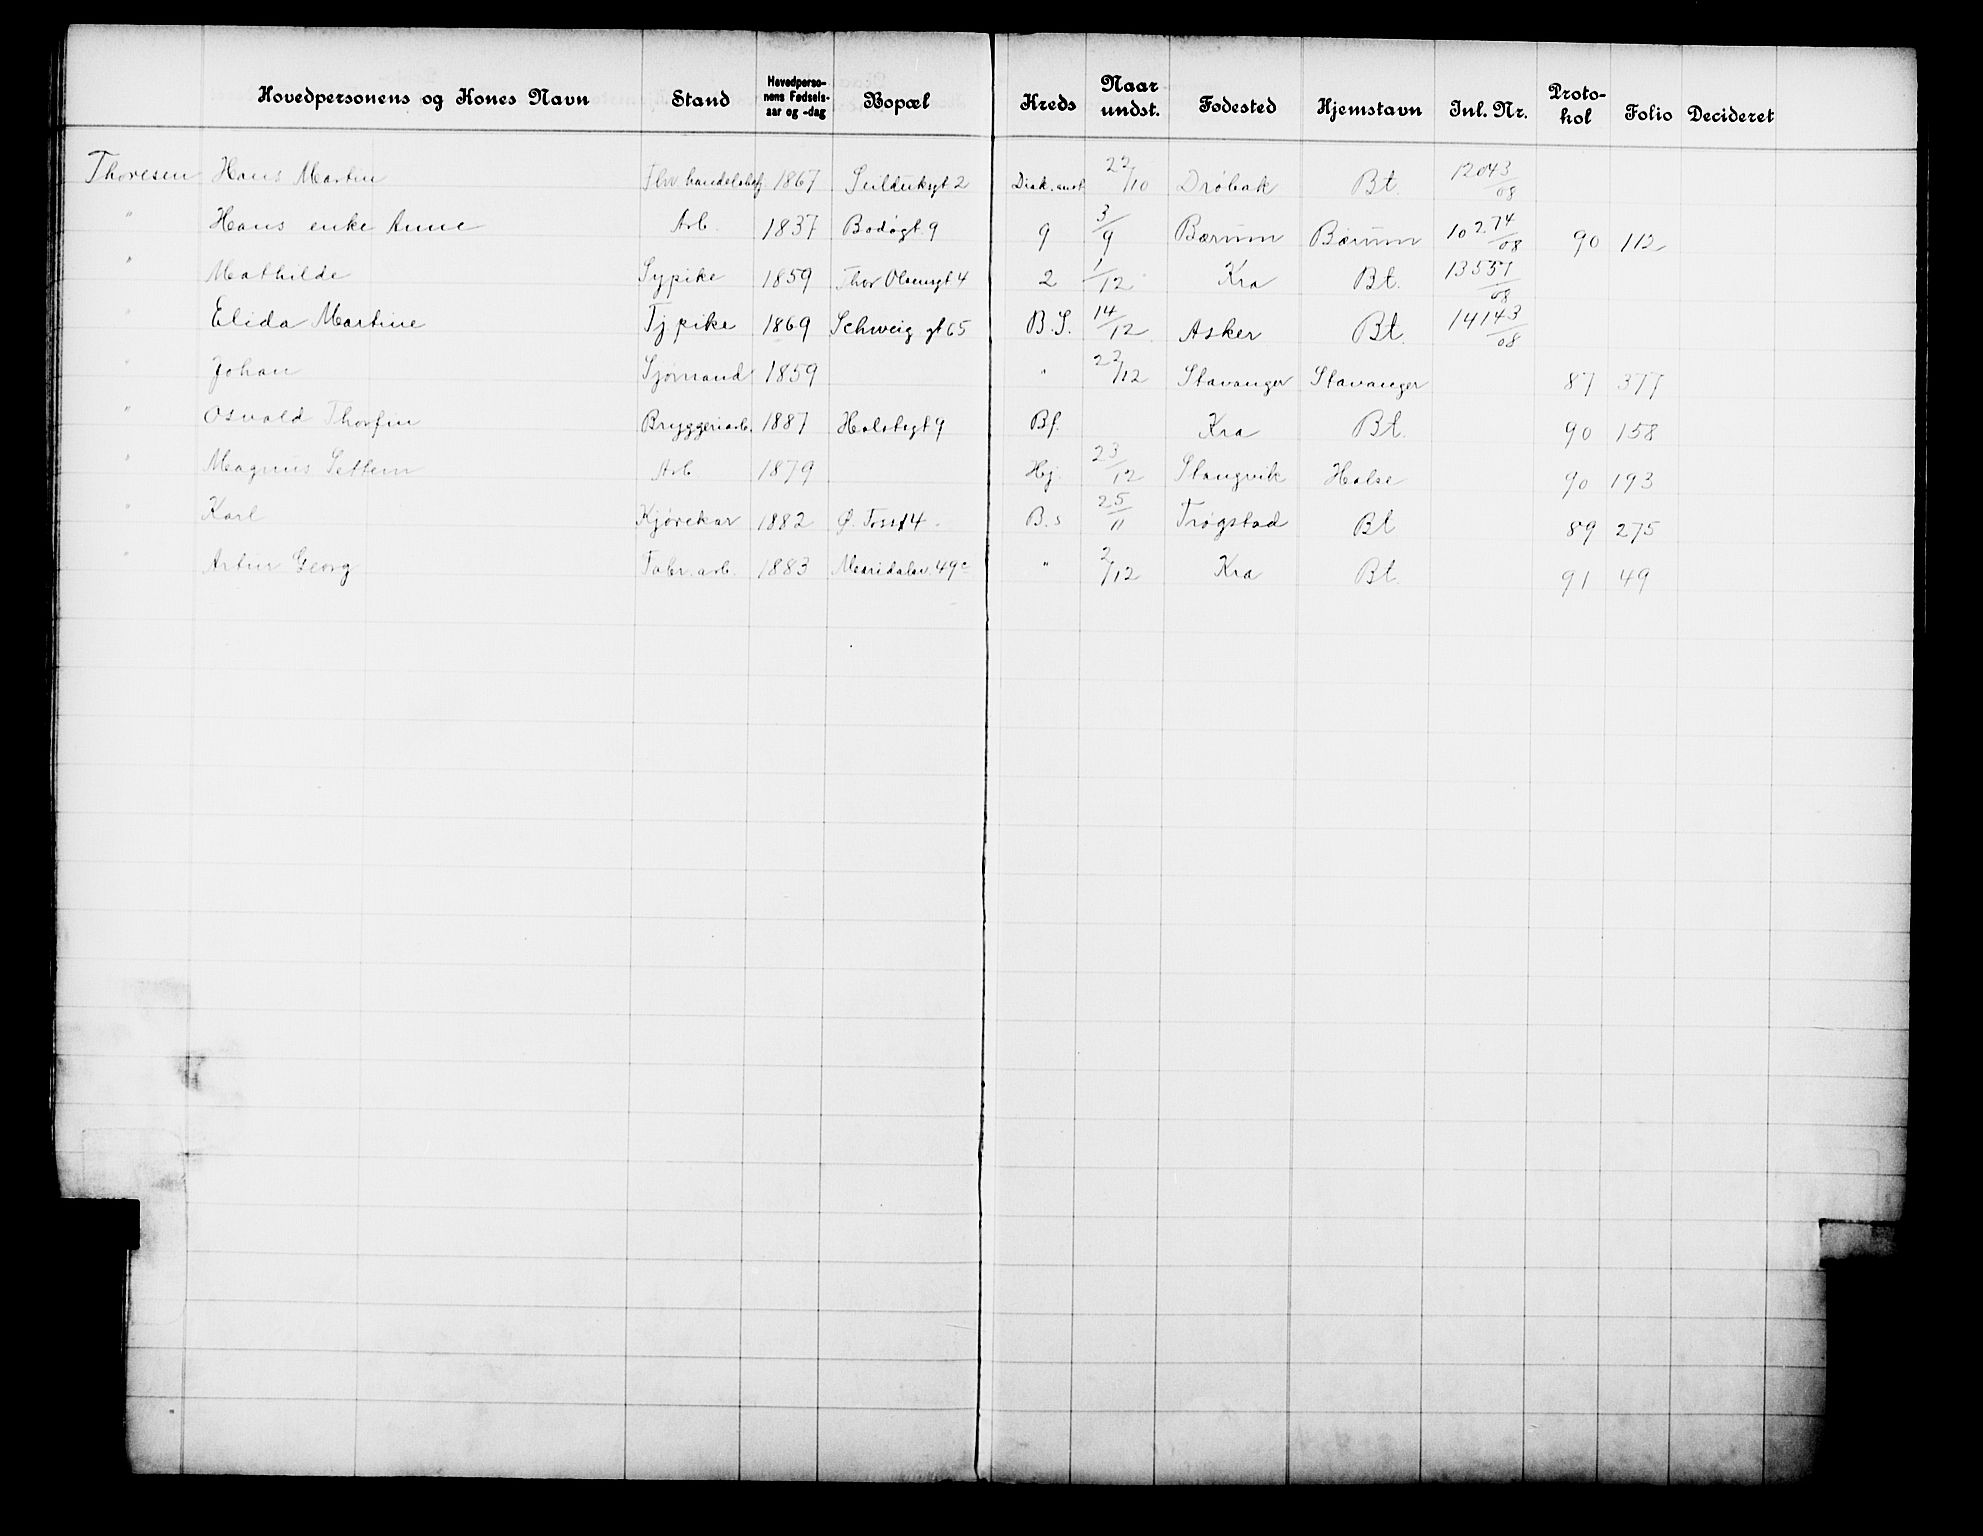 Hovedpersonens og Kones Navn Stand Hovedperso-nens Fødsels-aar og -dag Bopæl Kreds Naar undst. Fødested Hjemstavn Inl. Nr. Proto-kol Folio Decideret
Thoresen Hans Martin Fhv. handelsbetj 1867 2 Diak. anst. 22/10 Drøbak Bt. 12043/08
" Hans enke Anne Arb. 1837 Bodøgt 9 9 3/9 Bærum Bærum 10274/08 90 112
" Mathilde Sypike 1859 Thor Olsensgt 4 2 1/12 Kra Bt. 13551/08
" Elida Martine Tj pike 1869 Schweig gt 65 B. S. 14/12 Asker Bt. 14143/08
" Johan Sjømand 1859 " 22/12 Stavanger Stavanger 87 377
" Osvald Thorfin Bryggeriarb. 1887 Holstsgt 9 Bf. Kra Bt. 90 158
" Magnus Settem Arb 1879 Hj. 23/12 Stangvik Halse 90 193
" Karl Kjørekar 1882 Ø. Fossf 4 B. s 25/11 Trøgstad Bt 89 275
" Artur Georg Fabr. arb. 1883 Maridalsv. 49c " 2/12 Kra Bt. 91 49